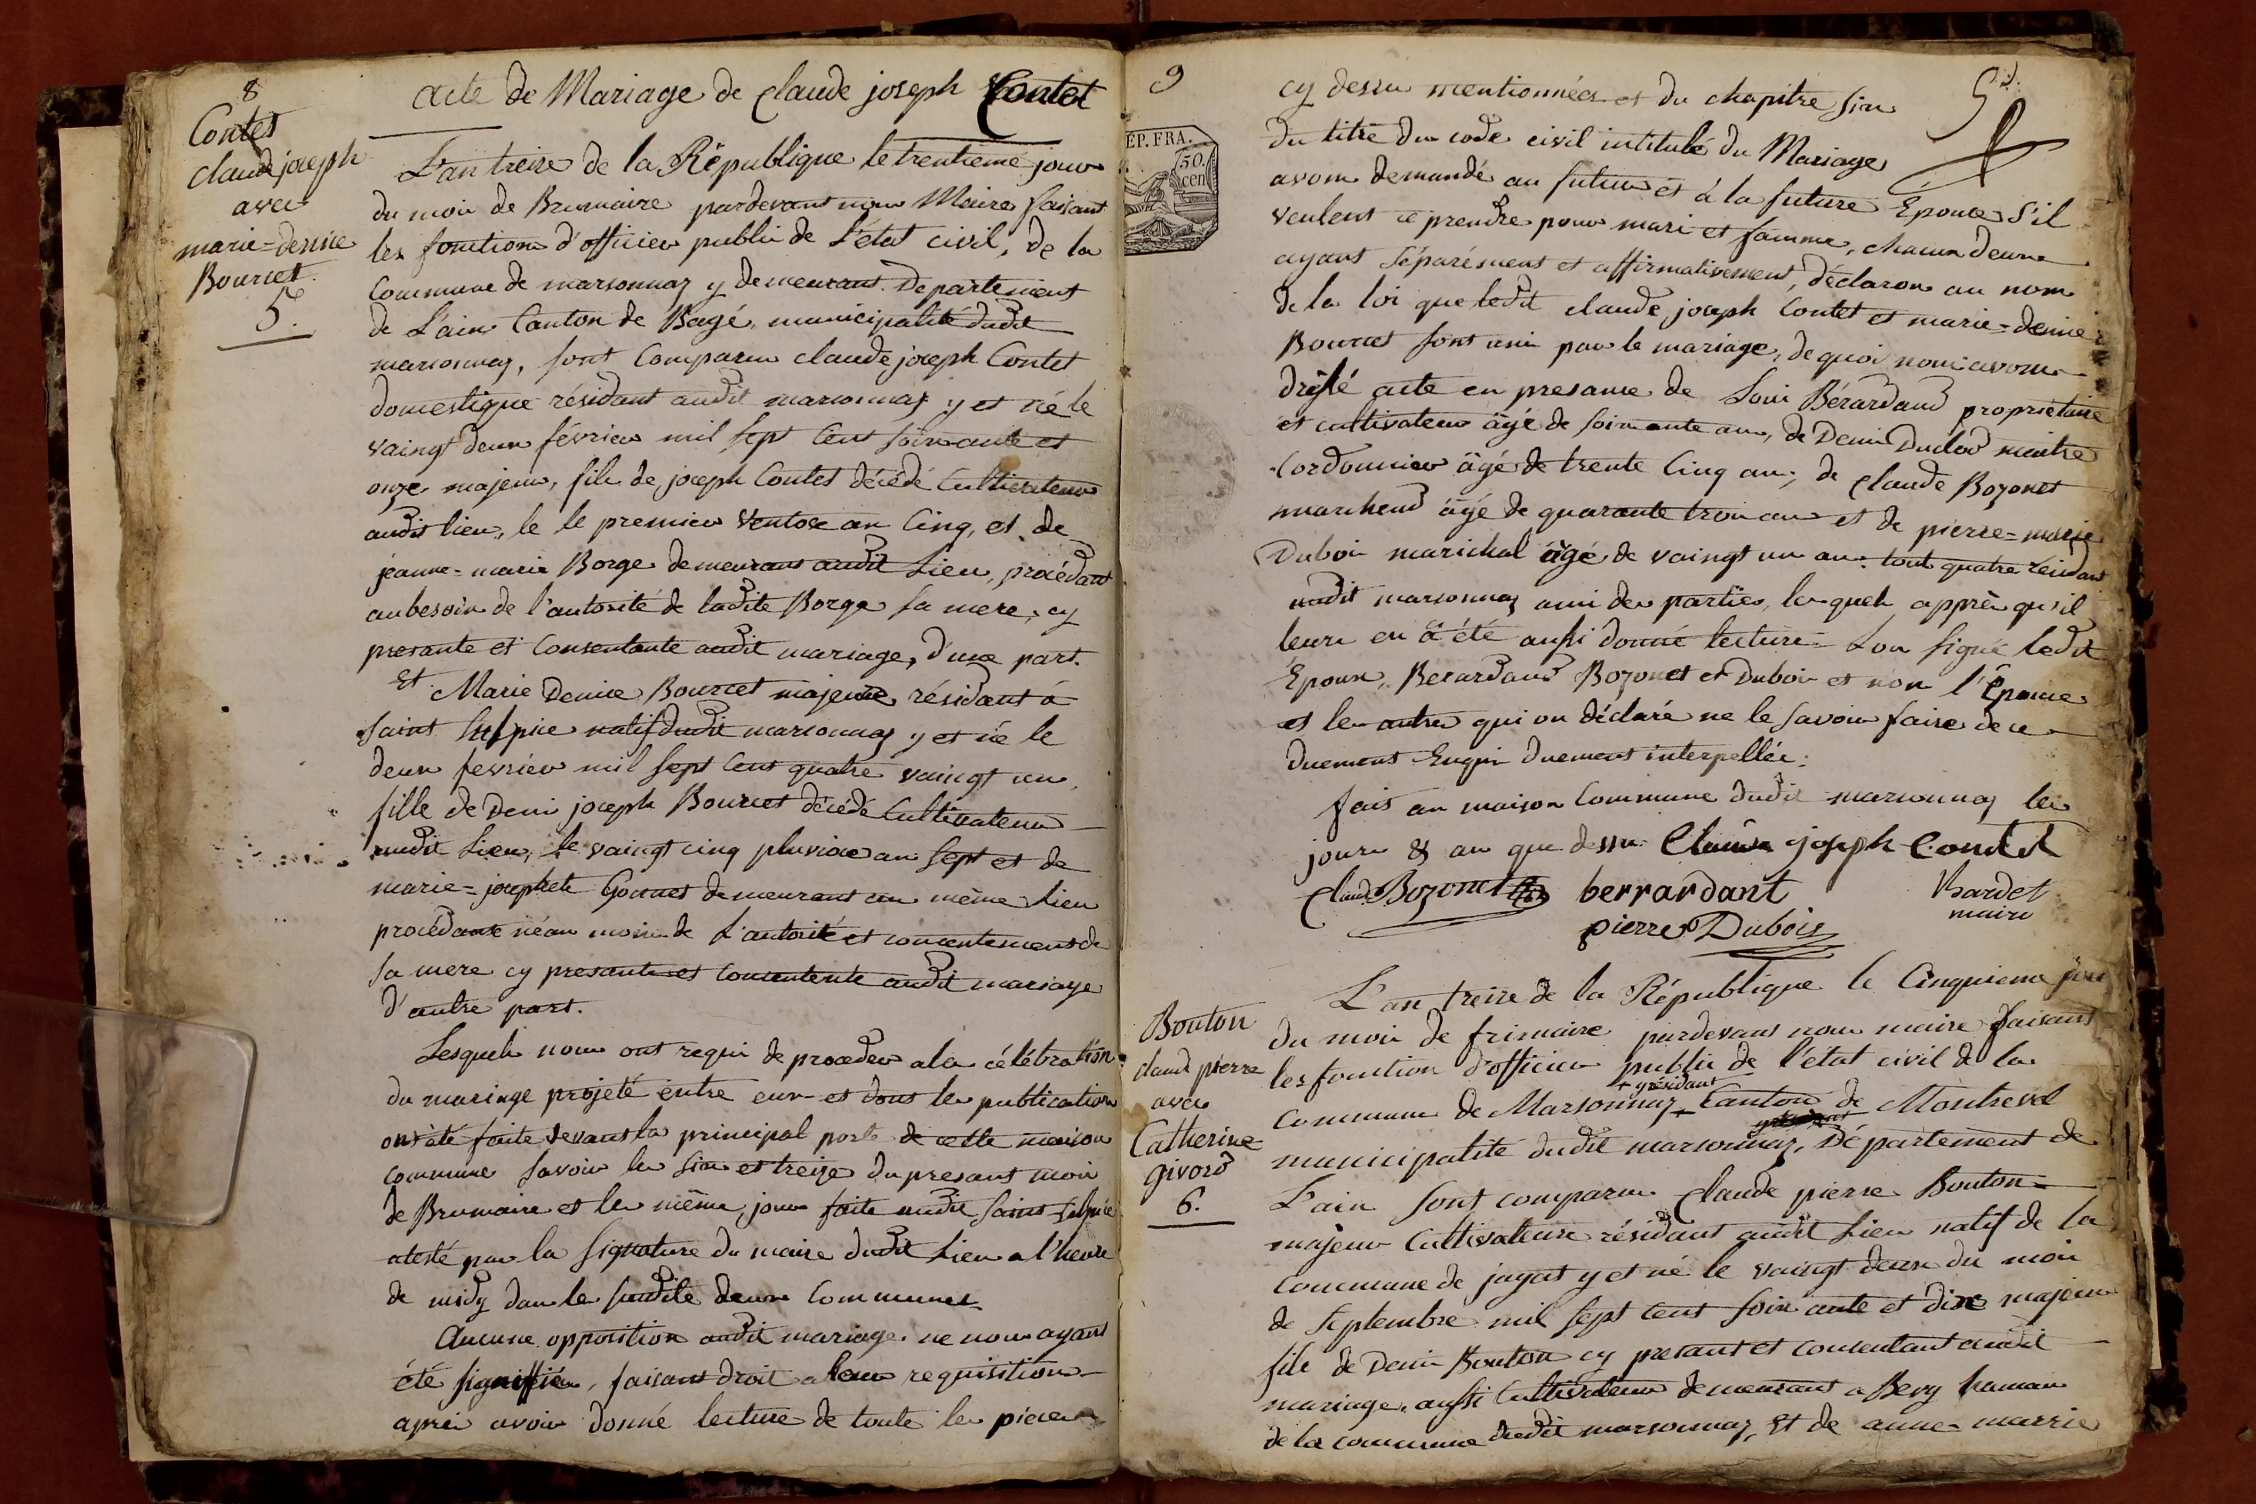 8
Contet
claude joseph
avec
marie=denise
Bourcet.
5.
acte de Mariage de Claude joseph Contet
L'an treize de la République le trentieme jour
du mois de Brumaire pardevant nous Maire faisant
les fonctions d'officier public de L'état civil, de la
Commune de marsonnaz y demeurant. Departement
de L'ain Canton de Bagé, municipalité dudit
marsonnaz, sont Comparus claude joseph Contet
domestique résidant audit marsonnaz y et né le
vaingt deux février mil sept Cent soixante et
onze majeur, fils de joseph Contet décédé Cultivateur
audit lieu, le le premier Ventose an Cinq, et de
jeanne=marie Borge demeurant audit Lieu, procédant
aubesoin de l'autorité de ladite Borge sa mere, cy
presante et Consentante audit mariage, d'une part.
Et Marie Denise Bourcet majeure résidant à
saint Sulpice natif dudit marsonnaz y et né le
deux fevrier mil sept Cent quatre vaingt un,
fille de Denis joseph Bourcet décédé Cultivateur
audit Lieu, le vaingt cinq pluviose an sept et de
marie=josephte Gonnet demeurant au même Lieu
procédante néan moins de L'autorité et consentement de
sa mere cy presante et Consentente audit mariage
d'autre part.
Lesquels nous ont requis de proceder a la célébration
du mariage projeté entre eux et dont les publications
ont été faite devant la principal porte de cette maison
commune savoir les six et treize du presant mois
de Brumaire et les même jour faite audit Saint Sulpice
atesté par la signature du maire dudit Lieu a l'heure
de midy dans les susdite deux Communes
Aucune opposition audit mariage ne nous ayant
été signiffiée, faisant droit a leur requisition
après avoir donné lecture de toute les pieces
9
5
REP. FRA.
50.
cen
cy dessu mentionnées et du chapitre six
du titre du code civil intitulé du Mariage
avons demandé au futur et à la future Épouse s'il
veulent ce prendre pour mari et famme, chacun deux
ayant séparément et affirmativement, déclaron au nom
de la loi que ledit claude joseph Contet et marie=denise
Bourcet sont unis par le mariage, de quoi nous avons
dréssé acte en presance de Louis Bérardand propriétaire
et cultivateur âgé de soixante ans, de Denis Duclos maitre
Cordonnier âgé de trente Cinq ans, de Claude Bozonet
marchend âgé de quarante trois ans et de pierre=marie
Dubois marichal âgé de vaingt un an. tout quatre résidant
audit marsonnaz ami des parties, lesquels apprès qu'il
leurs en à été aussi donné lecture Lon signé ledit
Époux, Berardand Bozonet et Dubois et non l'Épouse
et les autres qui on déclaré ne le savoir faire de ce
duement Enquis duement interpellée.
fais an maison Commune dudit marsonnaz les
jours & an que dessu. Claude joseph Contet
Claude Bozonet berrardant Bardet
maire
pierre Dubois
Bouton
claude pierre
avec
Catherine
givord
6.
L'an treize de la République le Cinquieme jour
du mois de frimaire pardevant nous maire faisant
les fonction d'officier public de l'état civil de la
+ y résidant
commune de Marsonnaz + Canton de Montrevel
municipalité dudit marsonnaz, Département de
L'ain sont comparu Claude pierre Bouton
majeur Cultivateur résidant audit Lieu natif de la
Commune de jayat y et né le vaingt deux du mois
de septembre mil sept cent soixante et dix majeur
fils de Denis Bouton cy presant et consentant audit
mariage, aussi Cultivateur demeurant a Bevy hamau
de la commune dudit marsonnaz, Et de anne marrie